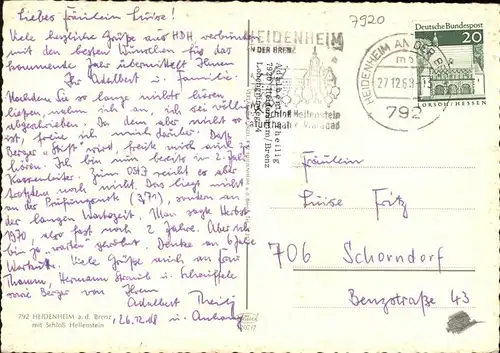 Liebes Fräulein Luise!
Viele herzliche Grüße aus HDH verbunden
mit den besten Wünschen für das
kommende Jahr übermittelt Ihnen
Ihr Adelbert u. Familie.
Nachdem Sie so lang nichts hören
ließen, nahm ich an, ich sei völlig
abgeschrieben. Da dem aber nicht so
ist, freue ich mich darüber. Daß
Berger "Stift" wird, freute mich auch zu
hören. Ich bin nun bereits im 2. Jahr
Kassenleiter. Zum OStJ reicht es aber
trotzdem noch nicht. Das liegt nicht
an der Prüfungsnote (7 1), sondern an
der langen Wartezeit. Man sagte Herbst
1970, also fast noch 2 Jahre. Aber ich
bin ja "warten" gewöhnt. Denke an 6 Jahre
Viele Grüße auch an
Hermann Strauch u. Scheiffele
sowie Berger von Ihrem
Adelbert
26.12.68 u. Anhang
792 HEIDENHEIM a.d. Brenz
mit Schloß Hellenstein
7920
HEIDENHEIM
AN DER BRENZ
Schloß Hellenstein
HEIDENHEIM AN DER BRENZ
27.12.68
792
Deutsche Bundespost
20
LORSCH/HESSEN
7920 Heidenheim/Brenz
Fräulein
Luise Fritz
706 Schorndorf
Benzstraße 43